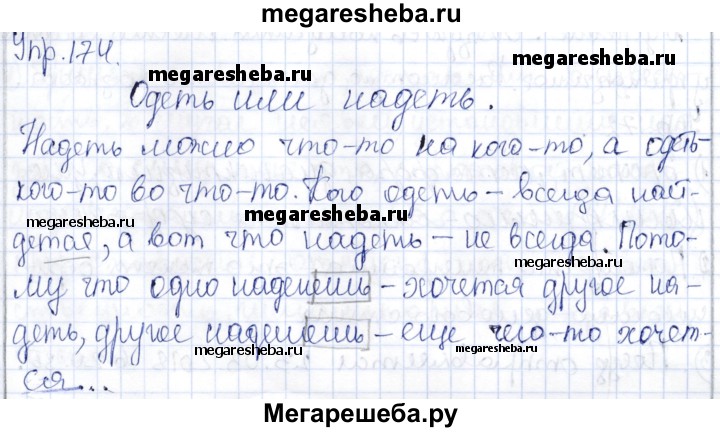 megaresheba.ru
Упр.174.
megaresheba.ru
megaresheba.ru
Одеть или надеть.
Надеть можно что-то на кого-то, а одеть-
кого-то во что-то. Кого одеть – всегда най-
megaresheba.ru
megaresheba.ru
дется, а вот что надеть – не всегда. Пото-
megaresheba.ru
му что одно наденешь – хочется другое на-
деть, другое наденешь – еще чего-то хочет-
megaresheba.ru
megaresheba.ru
ся...
Мегарешеба.ру